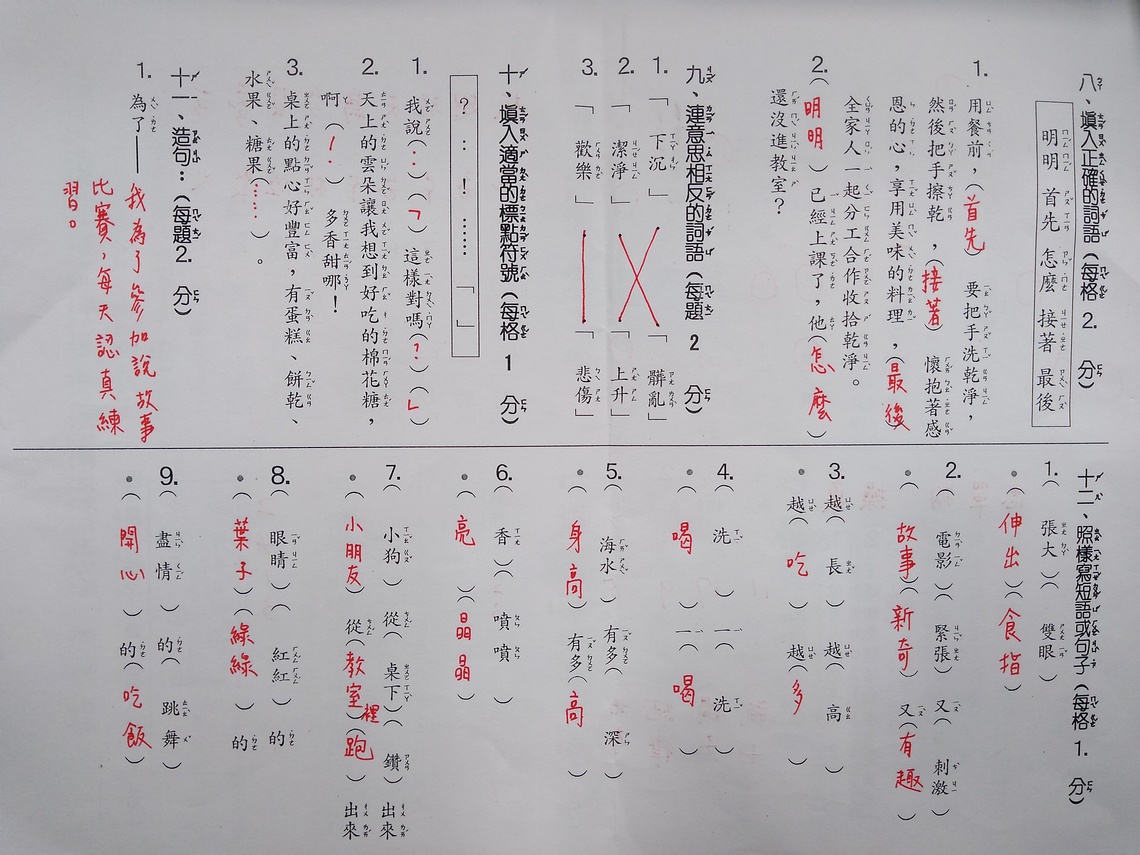 八、填入正確的詞語(每格2.分)
明明 首先 怎麼 接著 最後
1.用餐前,(首先)要把手洗乾淨,
然後把手擦乾,(接著)懷抱著感
恩的心,享用美味的料理,(最後)
全家人一起分工合作收拾乾淨。
2.(明明)已經上課了,他(怎麼)
還沒進教室?
九、連意思相反的詞語(每題2分)
1.「下沉」 「髒亂」
2.「潔淨」 「上升」
3.「歡樂」 「悲傷」
十、填入適當的標點符號(每格1分)
? : ! …… 「 」
1.我說(:)(「)這樣對嗎(?)(」)
2.天上的雲朵讓我想到好吃的棉花糖,
啊(!)多香甜哪!
3.桌上的點心好豐富,有蛋糕、餅乾、
水果、糖果(……)。
十一、造句:(每題2.分)
1.為了——我為了參加說故事
比賽,每天認真練
習。
十二、照樣寫短語或句子(每格1.分)
1.(張大)(雙眼)
•(伸出)(食指)
2.(電影)緊張)又(刺激)
•(故事)新奇)又(有趣)
3.越(長)越(高)
•越(吃)越(多)
4.(洗)(一)洗)
•(喝)(一)喝)
5.(海水)有多(深)
•(身高)有多(高)
6.(香)(噴噴)
•(亮)(晶晶)
7.(小狗)從(桌下)(鑽)出來
•(小朋友)從(教室裡)(跑)出來
8.(眼睛)(紅紅)的
•(葉子)(綠綠)的
9.(盡情)的(跳舞)
•(開心)的(吃飯)